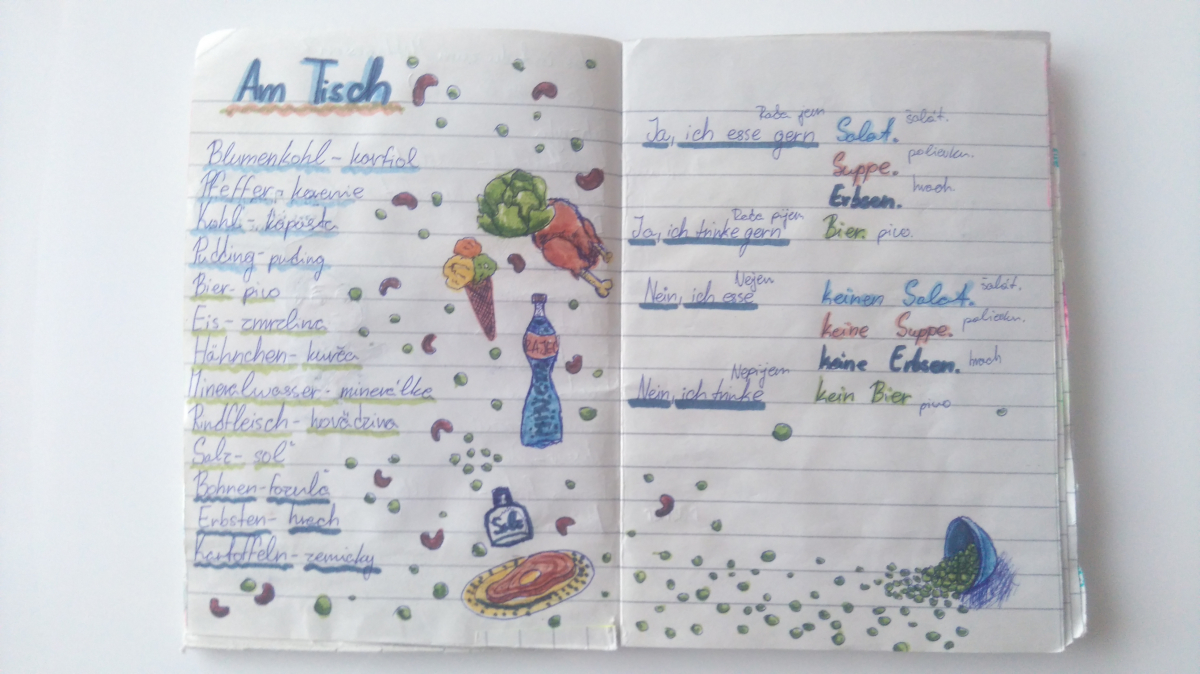 Am Tisch
Blumenkohl - karfiol
Pfeffer - korenie
Kohl - kapusta
Pudding - puding
Bier - pivo
Eis - zmrzlina
Hähnchen - kurča
Mineralwasser - minerálka
Rindfleisch - hovädzina
Salz - soľ
Bohnen - fazuľa
Erbsten - hrach
Kartoffeln - zemiaky
RAJEC
Salz
Rada jem
Ja, ich esse gern Salat. šalát.
Suppe. polievku.
Erbsen. hrach.
Rada pijem
Ja, ich trinke gern Bier. pivo.
Nejem
Nein, ich esse keinen Salat. šalát.
keine Suppe. polievku.
keine Erbsen. hrach
Nepijem
Nein, ich trinke kein Bier pivo